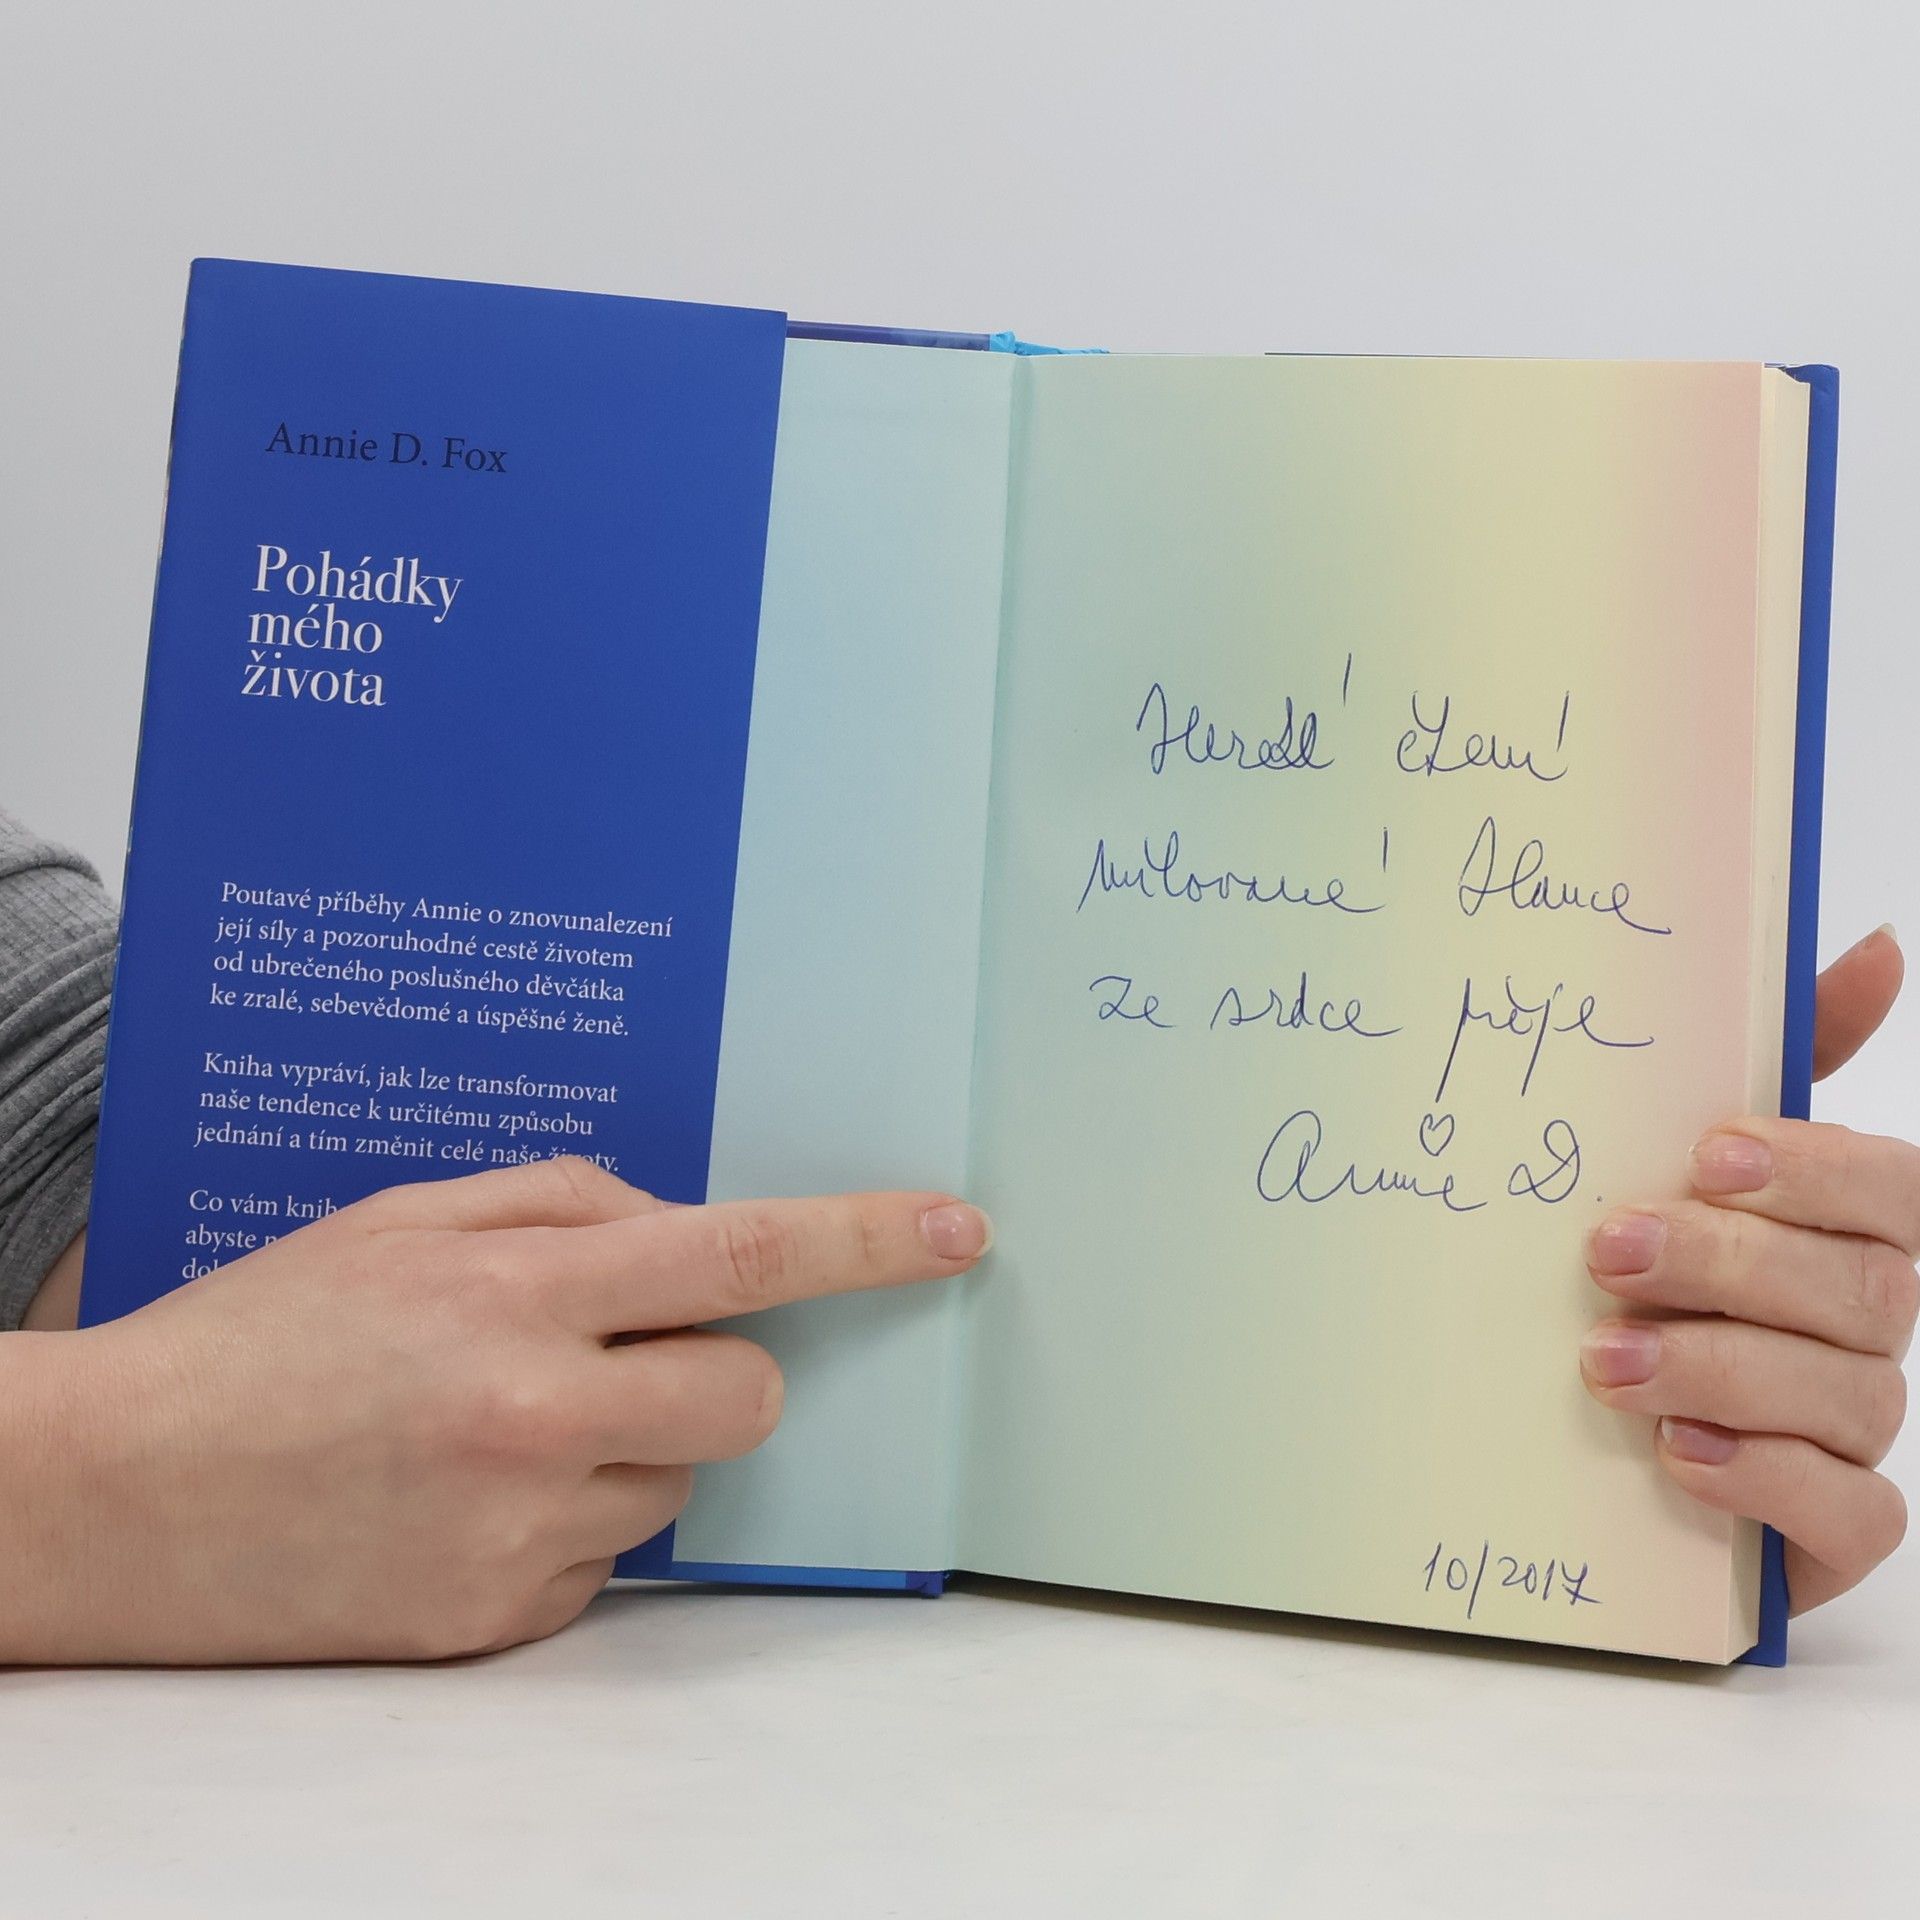 Annie D. Fox
Pohádky
mého
života
Poutavé příběhy Annie o znovunalezení
její síly a pozoruhodné cestě životem
od ubrečeného poslušného děvčátka
ke zralé, sebevědomé a úspěšné ženě.
Kniha vypráví, jak lze transformovat
naše tendence k určitému způsobu
jednání a tím změnit celé naše životy.
Co vám
abyste
Hezké čtení
milované Hance
ze srdce přeje
Annie D.
10/2017